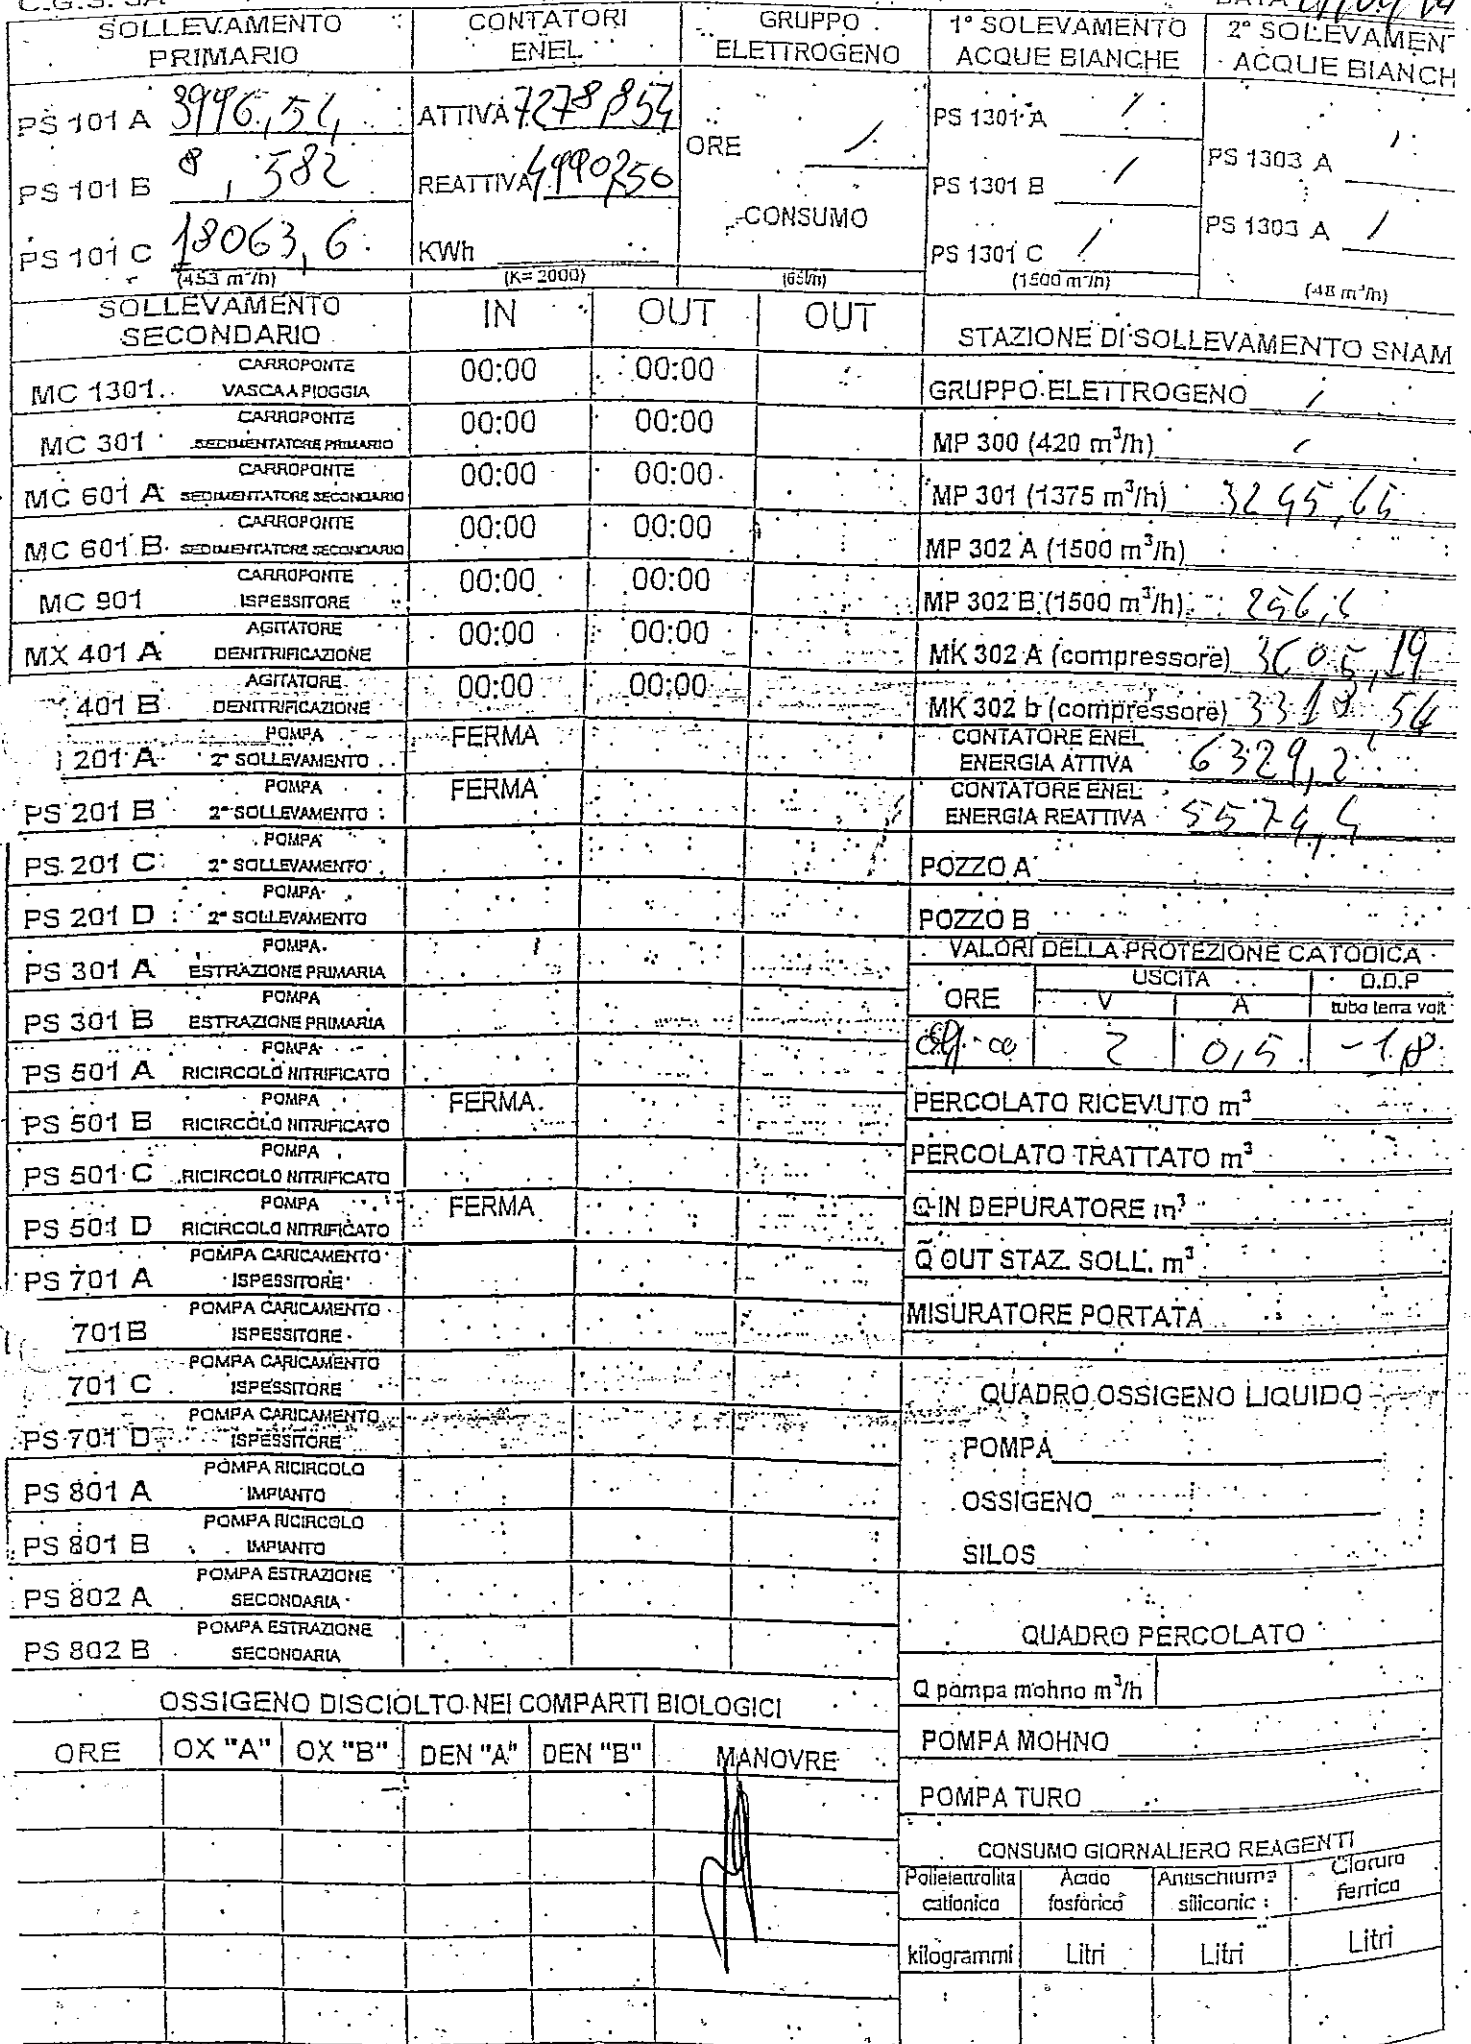 SOLLEVAMENTO PRIMARIO
PS 101 A
PS 101 B 8,582
PS 101 C 18063,6
(453 m³/h)
CONTATORI ENEL
ATTIVA 7278,854
REATTIVA
KWh
(K= 2000)
GRUPPO ELETTROGENO
ORE /
CONSUMO
1° SOLEVAMENTO ACQUE BIANCHE
PS 1301 A /
PS 1301 B /
PS 1301 C /
(1500 m³/h)
2° SOLLEVAMEN
ACQUE BIANCH
PS 1303 A /
PS 1303 A /
(48 m³/h)
SOLLEVAMENTO SECONDARIO IN OUT OUT
MC 1301 CARROPONTE VASCA A PIOGGIA 00:00 00:00
MC 301 CARROPONTE SEDIMENTATORE PRIMARIO 00:00 00:00
MC 601 A CARROPONTE SEDIMENTATORE SECONDARIO 00:00 00:00
MC 601 B CARROPONTE SEDIMENTATORE SECONDARIO 00:00 00:00
MC 901 CARROPONTE ISPESSITORE 00:00 00:00
MX 401 A AGITATORE DENITRIFICAZIONE 00:00 00:00
401 B AGITATORE DENITRIFICAZIONE 00:00 00:00
201 A POMPA 2° SOLLEVAMENTO FERMA
PS 201 B POMPA 2° SOLLEVAMENTO FERMA
PS 201 C POMPA 2° SOLLEVAMENTO
PS 201 D POMPA 2° SOLLEVAMENTO
PS 301 A POMPA ESTRAZIONE PRIMARIA
PS 301 B POMPA ESTRAZIONE PRIMARIA
PS 501 A POMPA RICIRCOLO NITRIFICATO
PS 501 B POMPA RICIRCOLO NITRIFICATO FERMA
PS 501 C POMPA RICIRCOLO NITRIFICATO
PS 501 D POMPA RICIRCOLO NITRIFICATO FERMA
PS 701 A POMPA CARICAMENTO ISPESSITORE
701B POMPA CARICAMENTO ISPESSITORE
701 C POMPA CARICAMENTO ISPESSITORE
PS 701 D POMPA CARICAMENTO ISPESSITORE
PS 801 A POMPA RICIRCOLO IMPIANTO
PS 801 B POMPA RICIRCOLO IMPIANTO
PS 802 A POMPA ESTRAZIONE SECONDARIA
PS 802 B POMPA ESTRAZIONE SECONDARIA
STAZIONE DI SOLLEVAMENTO SNAM
GRUPPO ELETTROGENO /
MP 300 (420 m³/h) /
MP 301 (1375 m³/h)
MP 302 A (1500 m³/h)
MP 302 B (1500 m³/h)
MK 302 A (compressore) 3605,19
MK 302 b (compressore)
CONTATORE ENEL ENERGIA ATTIVA 6329,2
CONTATORE ENEL ENERGIA REATTIVA
POZZO A
POZZO B
VALORI DELLA PROTEZIONE CATODICA
ORE USCITA D.D.P
V A tubo terra volt
2 0,5 -1,8
PERCOLATO RICEVUTO m³
PERCOLATO TRATTATO m³
Q IN DEPURATORE m³
Q OUT STAZ. SOLL. m³
MISURATORE PORTATA
QUADRO OSSIGENO LIQUIDO
POMPA
OSSIGENO
SILOS
QUADRO PERCOLATO
Q pompa mohno m³/h
POMPA MOHNO
POMPA TURO
CONSUMO GIORNALIERO REAGENTI
Polielettrolita cationico Acido fosforico Antischiuma siliconic Cloruro ferrico
kilogrammi Litri Litri Litri
OSSIGENO DISCIOLTO NEI COMPARTI BIOLOGICI
ORE OX "A" OX "B" DEN "A" DEN "B" MANOVRE